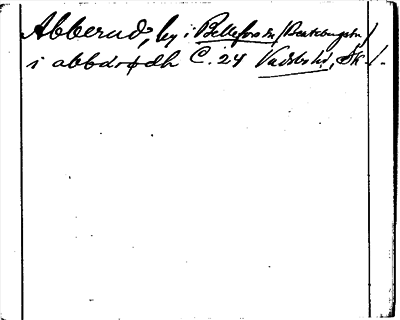 Abberud, by i Bellefors sn /Beateberg sn/
i abbdrødh C. 24 Vadsbo hd, Sk. l.